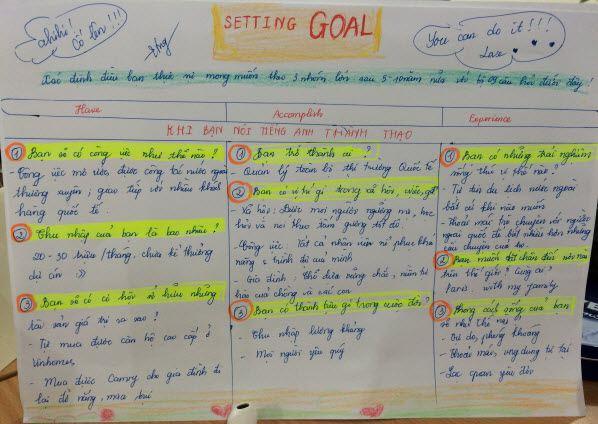 ahihi!
Cố lên!!!
SETTING GOAL
You can do it!!!
Love
Xác định điều bạn thực sự mong muốn theo 3 nhóm lớn sau 5-10 năm nữa với bộ 09 câu hỏi dưới đây!
Have
Accomplish
Experience
KHI BẠN NÓI TIẾNG ANH THÀNH THẠO
① Bạn sẽ có công việc như thế nào?
- Công việc mơ ước, được công tác nước ngoài
thường xuyên; giao tiếp với nhiều khách
hàng quốc tế.
② Thu nhập của bạn là bao nhiêu?
20 - 30 triệu/tháng, chưa kể thưởng
dự án :))
③ Bạn sẽ có cơ hội sở hữu những
tài sản giá trị ra sao?
- Tự mua được căn hộ cao cấp ở
Vinhomes
- Mua được Camry cho gia đình đi
lại đỡ nắng, mưa bụi
① Bạn trở thành ai?
- Quản lý toàn bộ thị trường Quốc tế
② Bạn có vị trí gì trong xã hội, việc, gđ?
- Xã hội: Được mọi người ngưỡng mộ, học
hỏi và noi theo tấm gương tốt đó.
- Công việc: Tất cả nhân viên nể phục khả
năng & trình độ của mình
- Gia đình: Chỗ dựa vững chắc, niềm tự
hào của chồng và các con
③ Bạn có thành tựu gì trong cuộc đời?
- Thu nhập lương khủng
- Mọi người yêu quý
① Bạn có những trải nghiệm
sống thú vị như thế nào?
- Tự tin du lịch nước ngoài
bất cứ khi nào muốn
- Thoải mái trò chuyện với người
ngoại quốc để biết nhiều hơn những
câu chuyện của họ.
② Bạn muốn đặt chân đến nơi nào
trên thế giới? Cùng ai?
Paris. with my family
③ Phong cách sống của bạn
sẽ như thế nào?
- Tự do, phóng khoáng
- Thoải mái, ung dung tự tại
- Lạc quan yêu đời